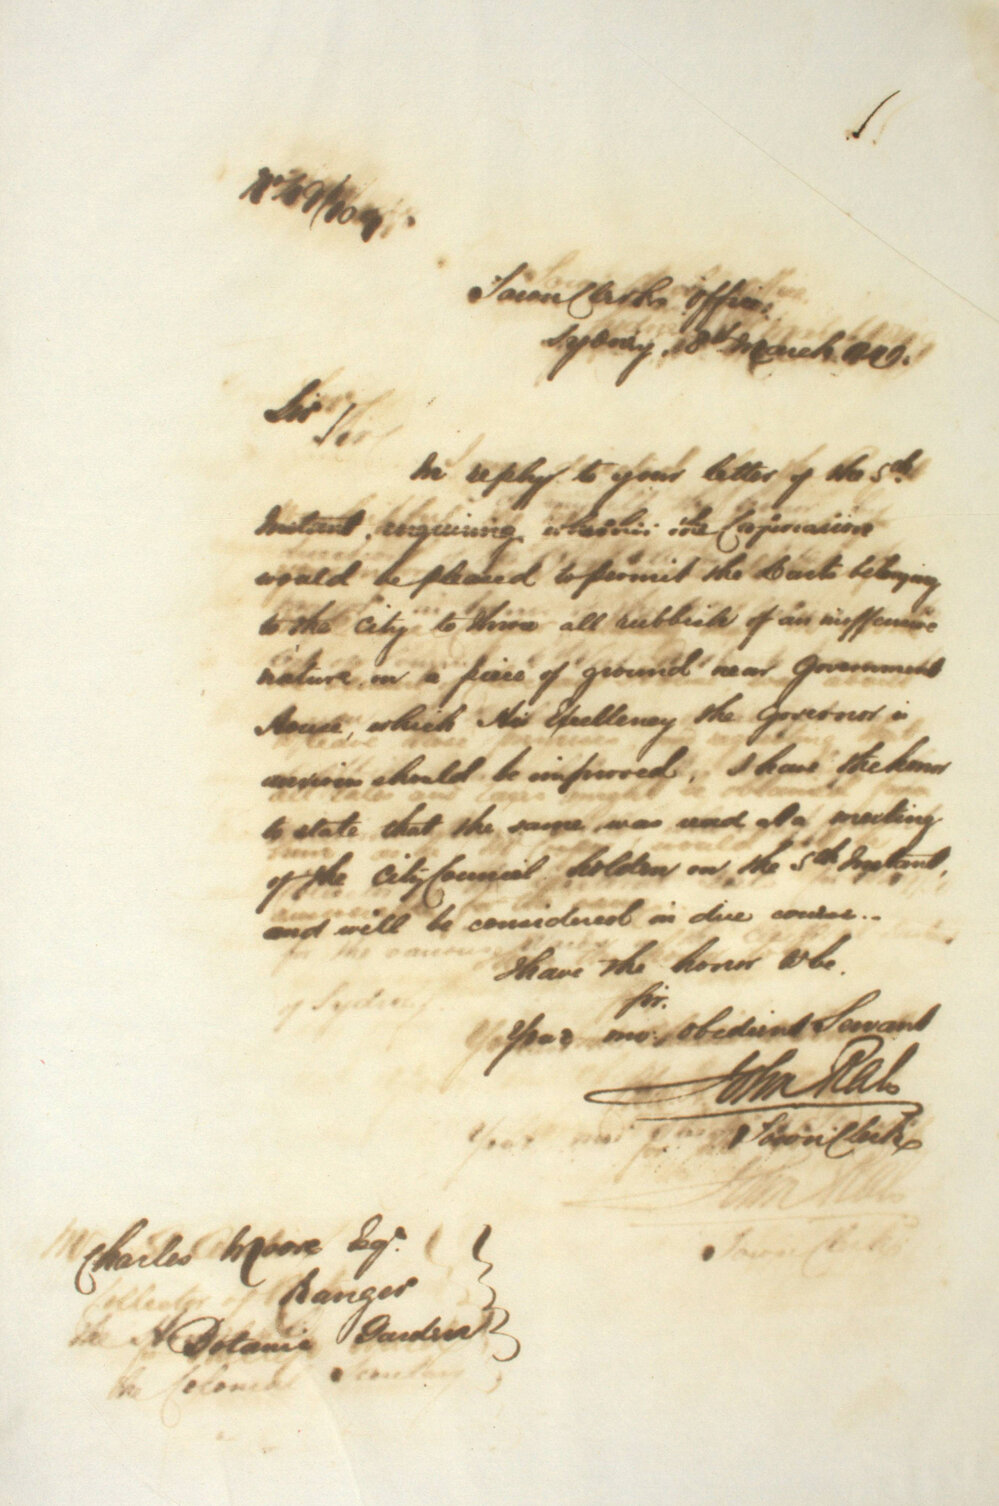 Town Clerks Office
Sydney, 8th March
Sir
In reply to your letter of the 5th
Instant, enquiring whether the Corporation
would be pleased to permit the Carts belonging
to the City to throw all rubbish of an inoffensive
nature, on a piece of ground near Government
House, which His Excellency the Governor is
anxious should be improved, I have the honor
to state that the same was read at a meeting
of the City Council holden on the 5th Instant,
and will be considered in due course..
I have the honor to be,
Sir.
Your mo. obedient Servant
John Rae
Town Clerk
Charles Moore Esqr.
Ranger
Botanic Garden